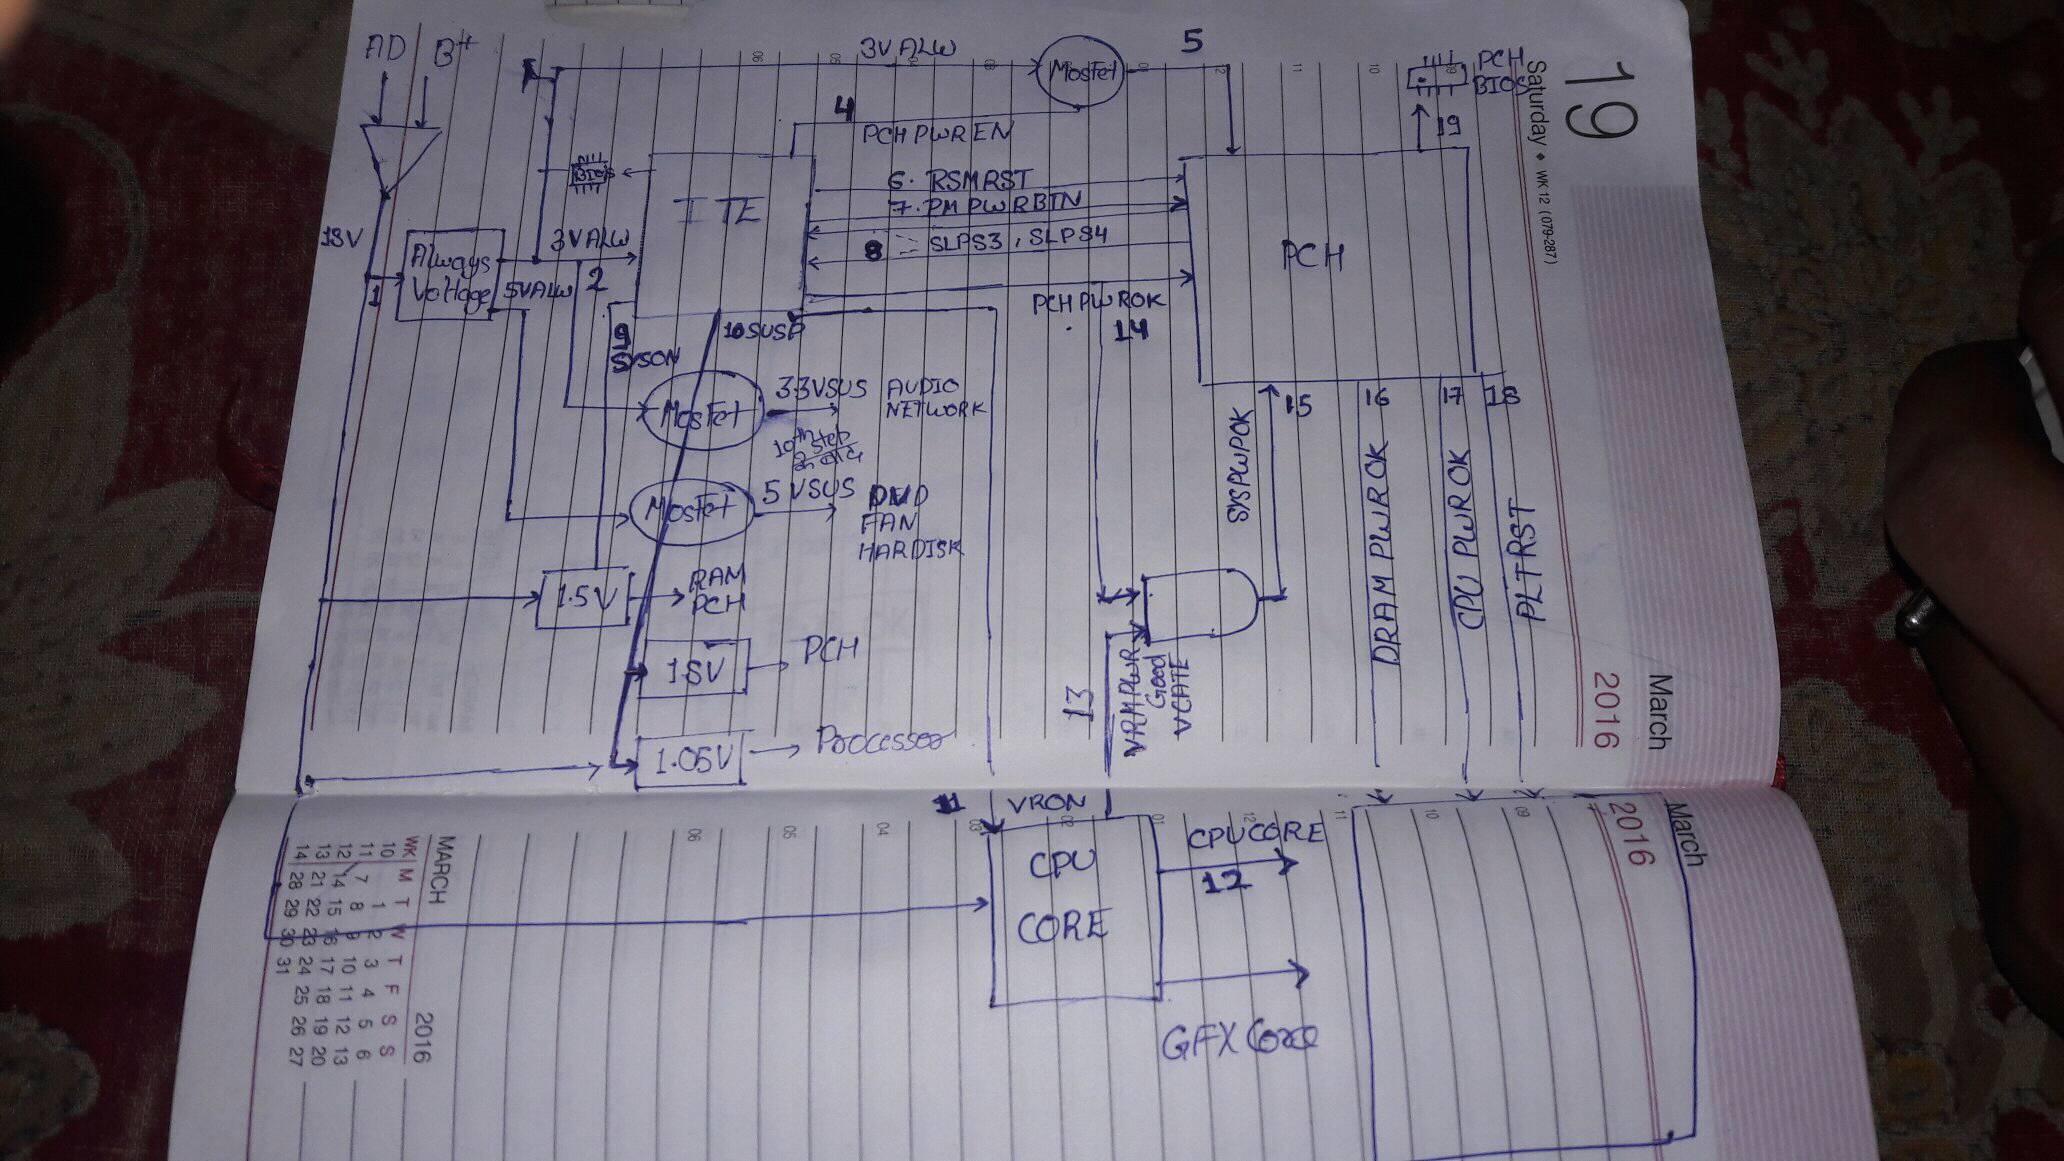 AD B+
3VALW
Mosfet
5
PCH
BIOS
19
4
PCHPWREN
BIOS
ITE
6. RSMRST
7. PMPWRBTN
8 SLPS3, SLPS4
PCH
19V
Always
Voltage
1
3VALW
5VALW
2
PCHPWROK
14
9
SYSON
10 SUSP
Mosfet
3.3VSUS
AUDIO
NETWORK
10th Step
Mosfet
5VSUS
DVD
FAN
HARDISK
1.5V
RAM
PCH
1.8V
PCH
1.05V
Processor
SYSPWROK
15
16
DRAMPWROK
17
CPUPWROK
18
PLTRST
13
VRMPWR
Good
VGATE
11
VRON
CPU
CORE
CPUCORE
12
GFX Core
19
Saturday • WK 12 (079-287)
March
2016
06 05 04 03 01 12 11 10 09
March
2016
06 05 04 03 02 01 12 11 10 09
MARCH 2016
WK M T W T F S S
10 1 2 3 4 5 6
11 7 8 9 10 11 12 13
12 14 15 16 17 18 19 20
13 21 22 23 24 25 26 27
14 28 29 30 31